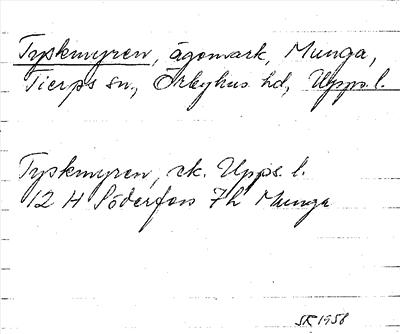 Tyskmyren, ägomark, Munga,
Tierps sn, Örbyhus hd, Upps. l.
Tyskmyren, ek. Upps. l.
12 H Söderfors 7h Munga
SR 1958